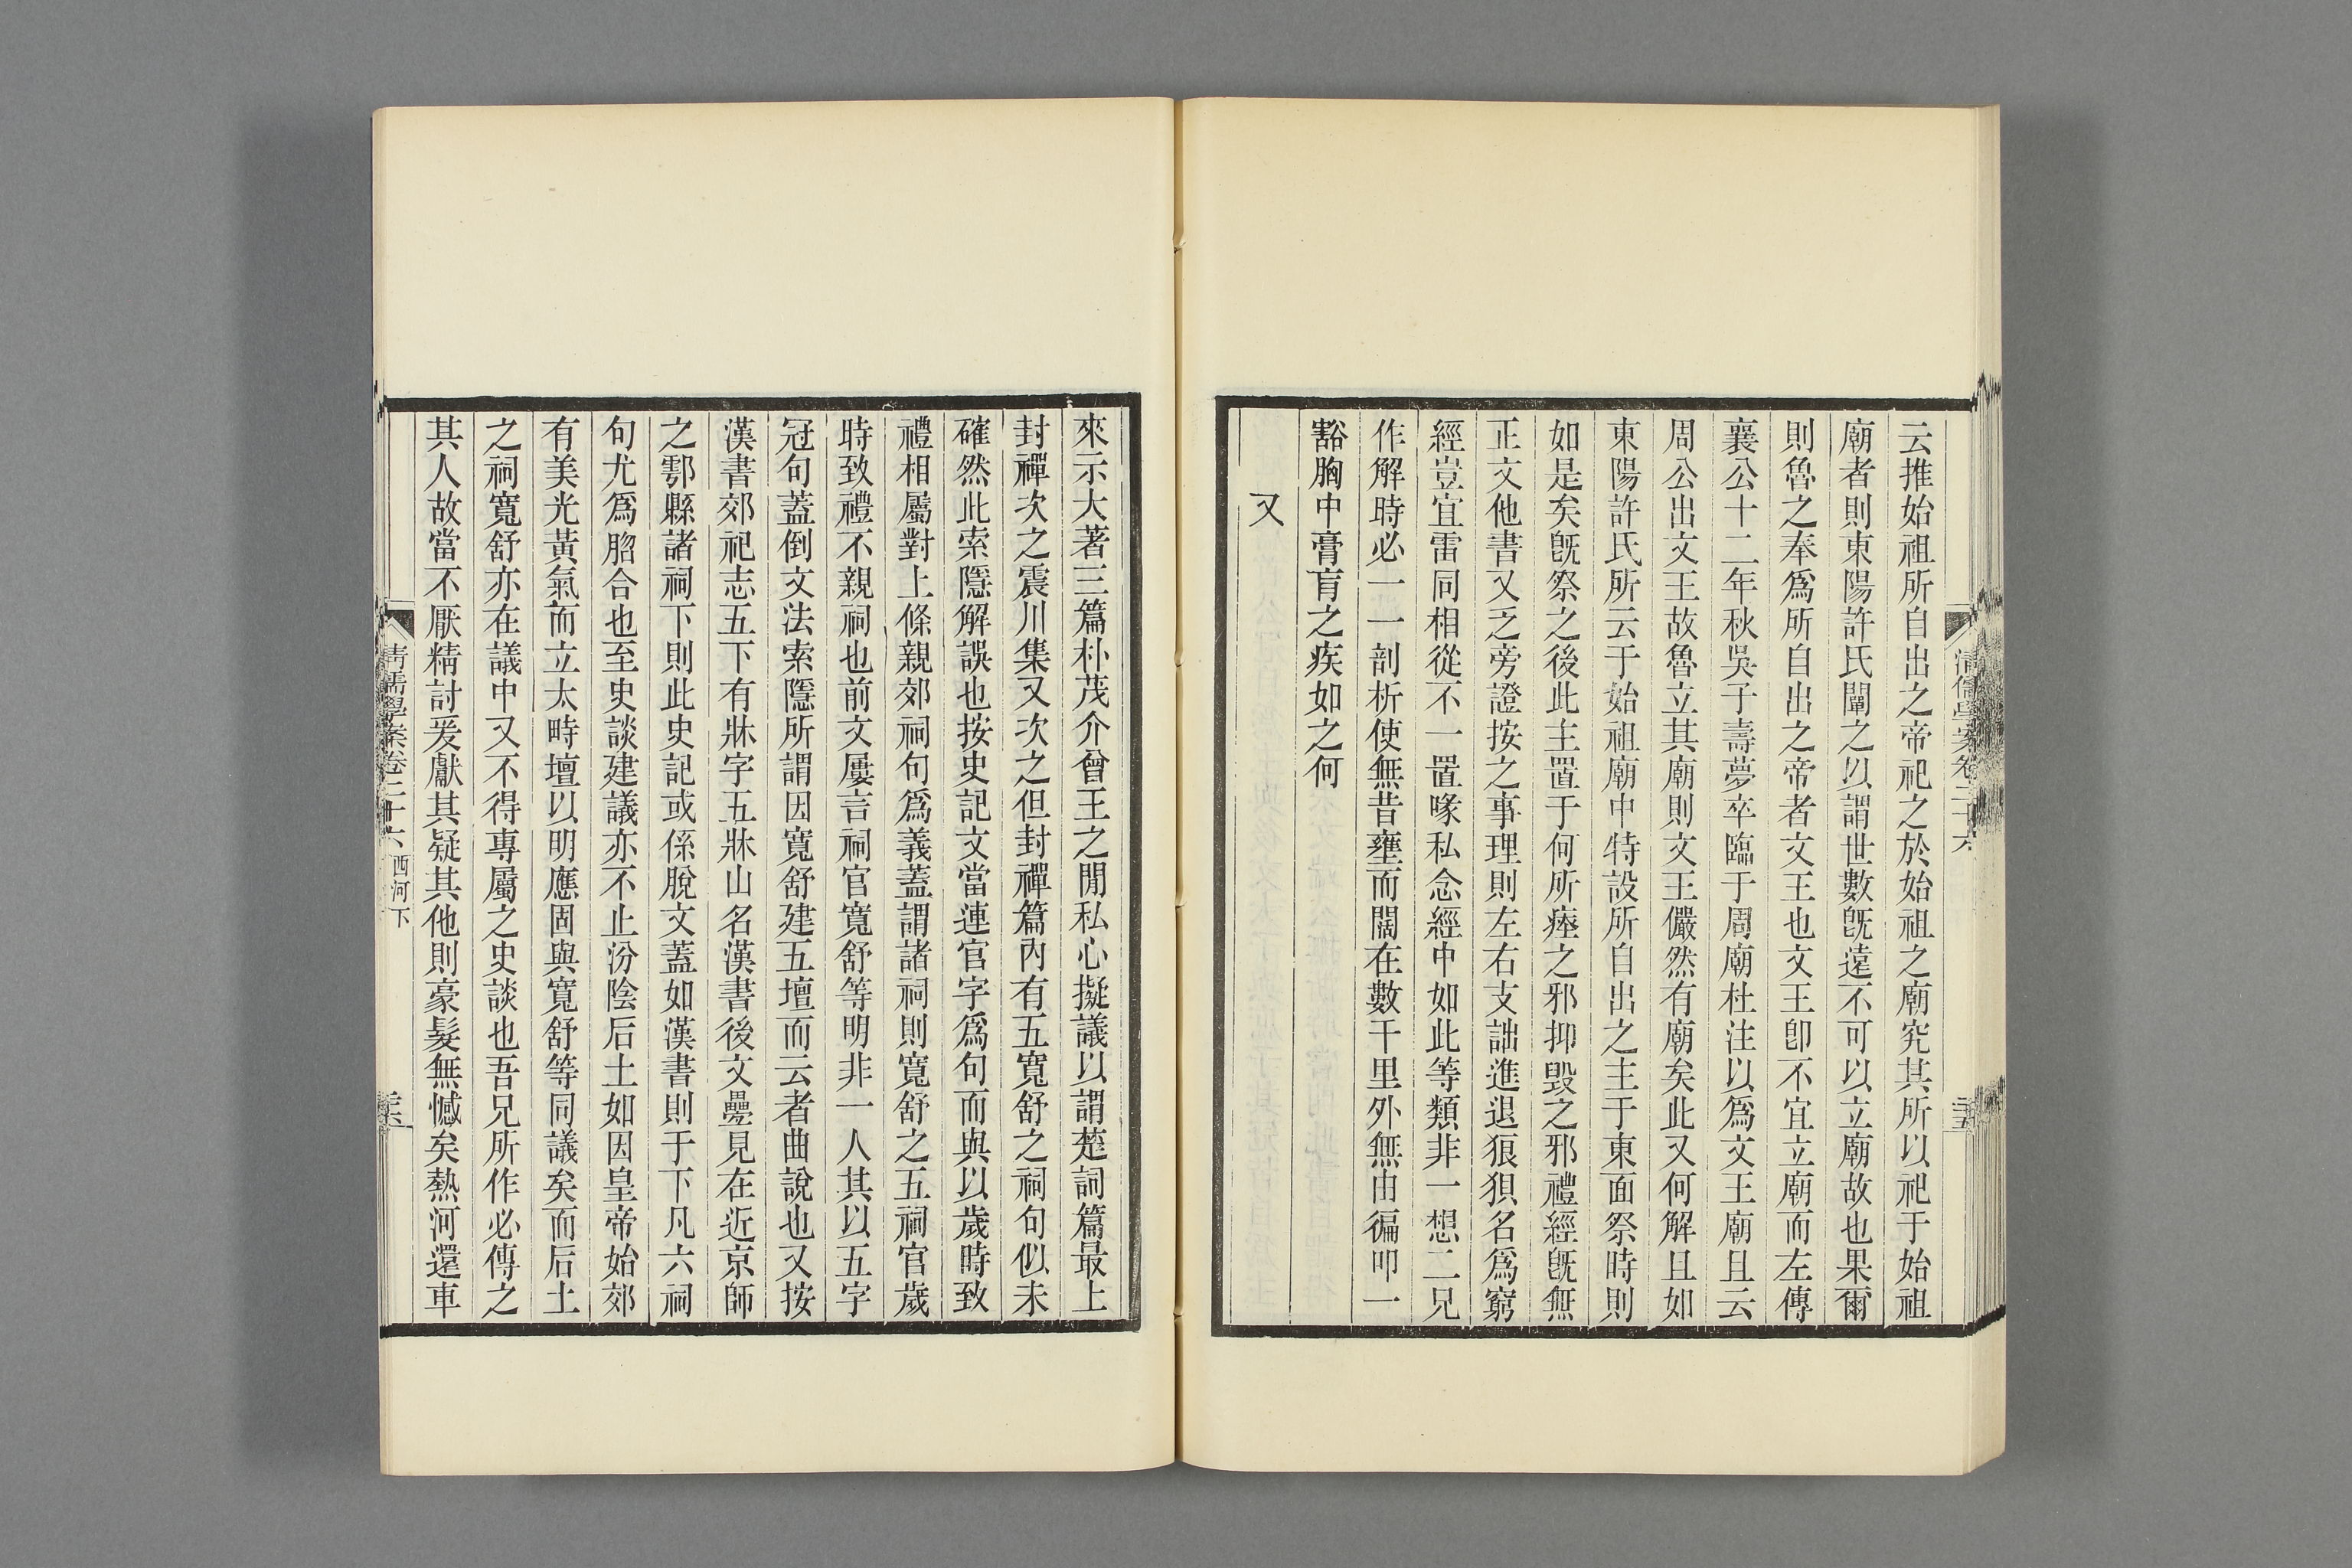 清儒學案卷二十六
云推始祖所自出之帝祀之於始祖之廟究其所以祀于始祖
廟者則東陽許氏闡之以謂世數旣遠不可以立廟故也果爾
則魯之奉爲所自出之帝者文王也文王卽不宜立廟而左傳
襄公十二年秋吳子壽夢卒臨于周廟杜注以爲文王廟且云
周公出文王故魯立其廟則文王儼然有廟矣此又何解且如
東陽許氏所云于始祖廟中特設所自出之主于東面祭時則
如是矣旣祭之後此主置于何所瘞之邪抑毀之邪禮經旣無
正文他書又乏旁證按之事理則左右支詘進退狼狽名爲窮
經豈宜雷同相從不一置喙私念經中如此等類非一想二兄
作解時必一一剖析使無昔壅而闊在數千里外無由徧叩一
豁胸中膏肓之疾如之何
又
來示大著三篇朴茂介曾王之閒私心擬議以謂楚詞篇最上
封禪次之震川集又次之但封禪篇內有五寬舒之祠句似未
確然此索隱解誤也按史記文當連官字爲句而與以歲時致
禮相屬對上條親郊祠句爲義蓋謂諸祠則寬舒之五祠官歲
時致禮不親祠也前文屢言祠官寬舒等明非一人其以五字
冠句蓋倒文法索隱所謂因寬舒建五壇而云者曲說也又按
漢書郊祀志五下有牀字五牀山名漢書後文疊見在近京師
之鄠縣諸祠下則此史記或係脫文蓋如漢書則于下凡六祠
句尤爲脗合也至史談建議亦不止汾陰后土如因皇帝始郊
有美光黃氣而立太畤壇以明應固與寬舒等同議矣而后土
之祠寬舒亦在議中又不得專屬之史談也吾兄所作必傳之
其人故當不厭精討爰獻其疑其他則豪髮無憾矣熱河還車
清儒學案卷二十六 西河下